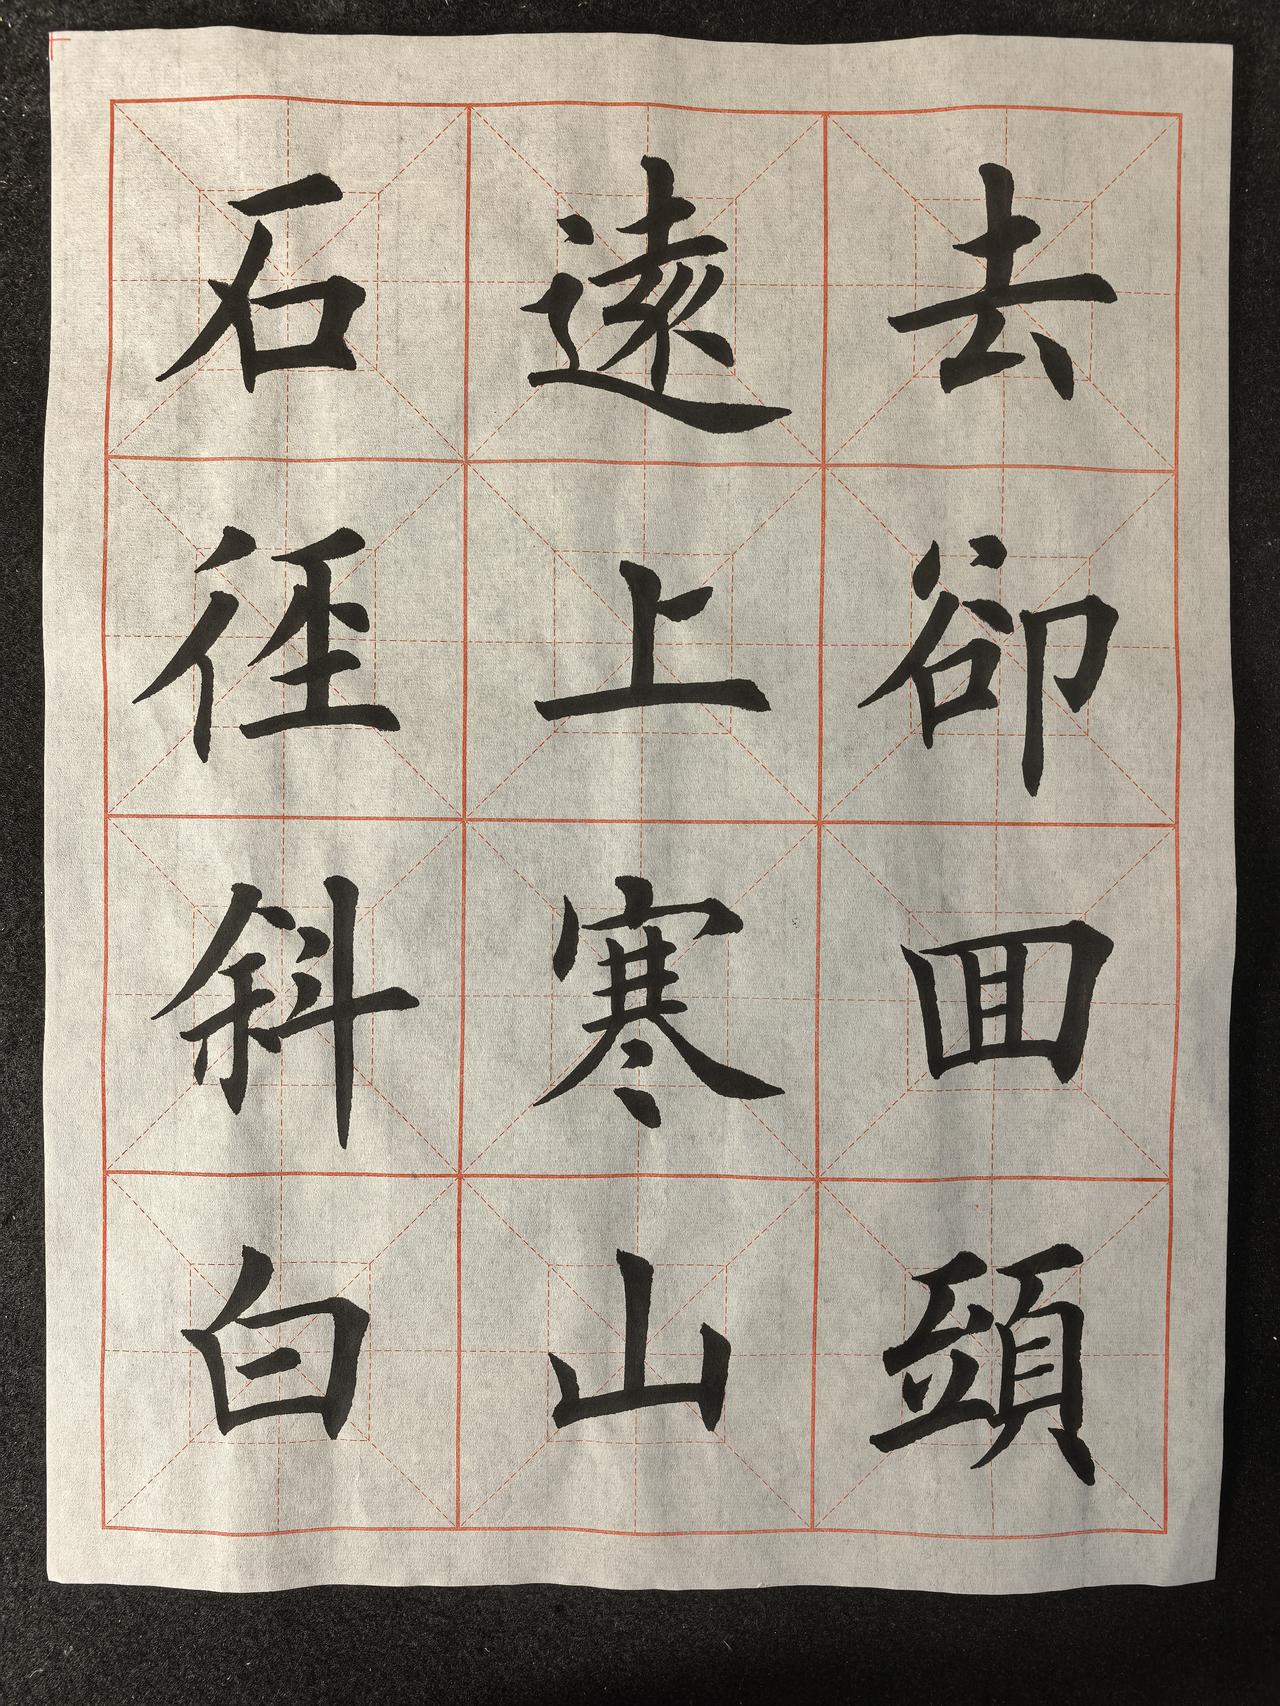 去卻回頭
遠上寒山
石徑斜白